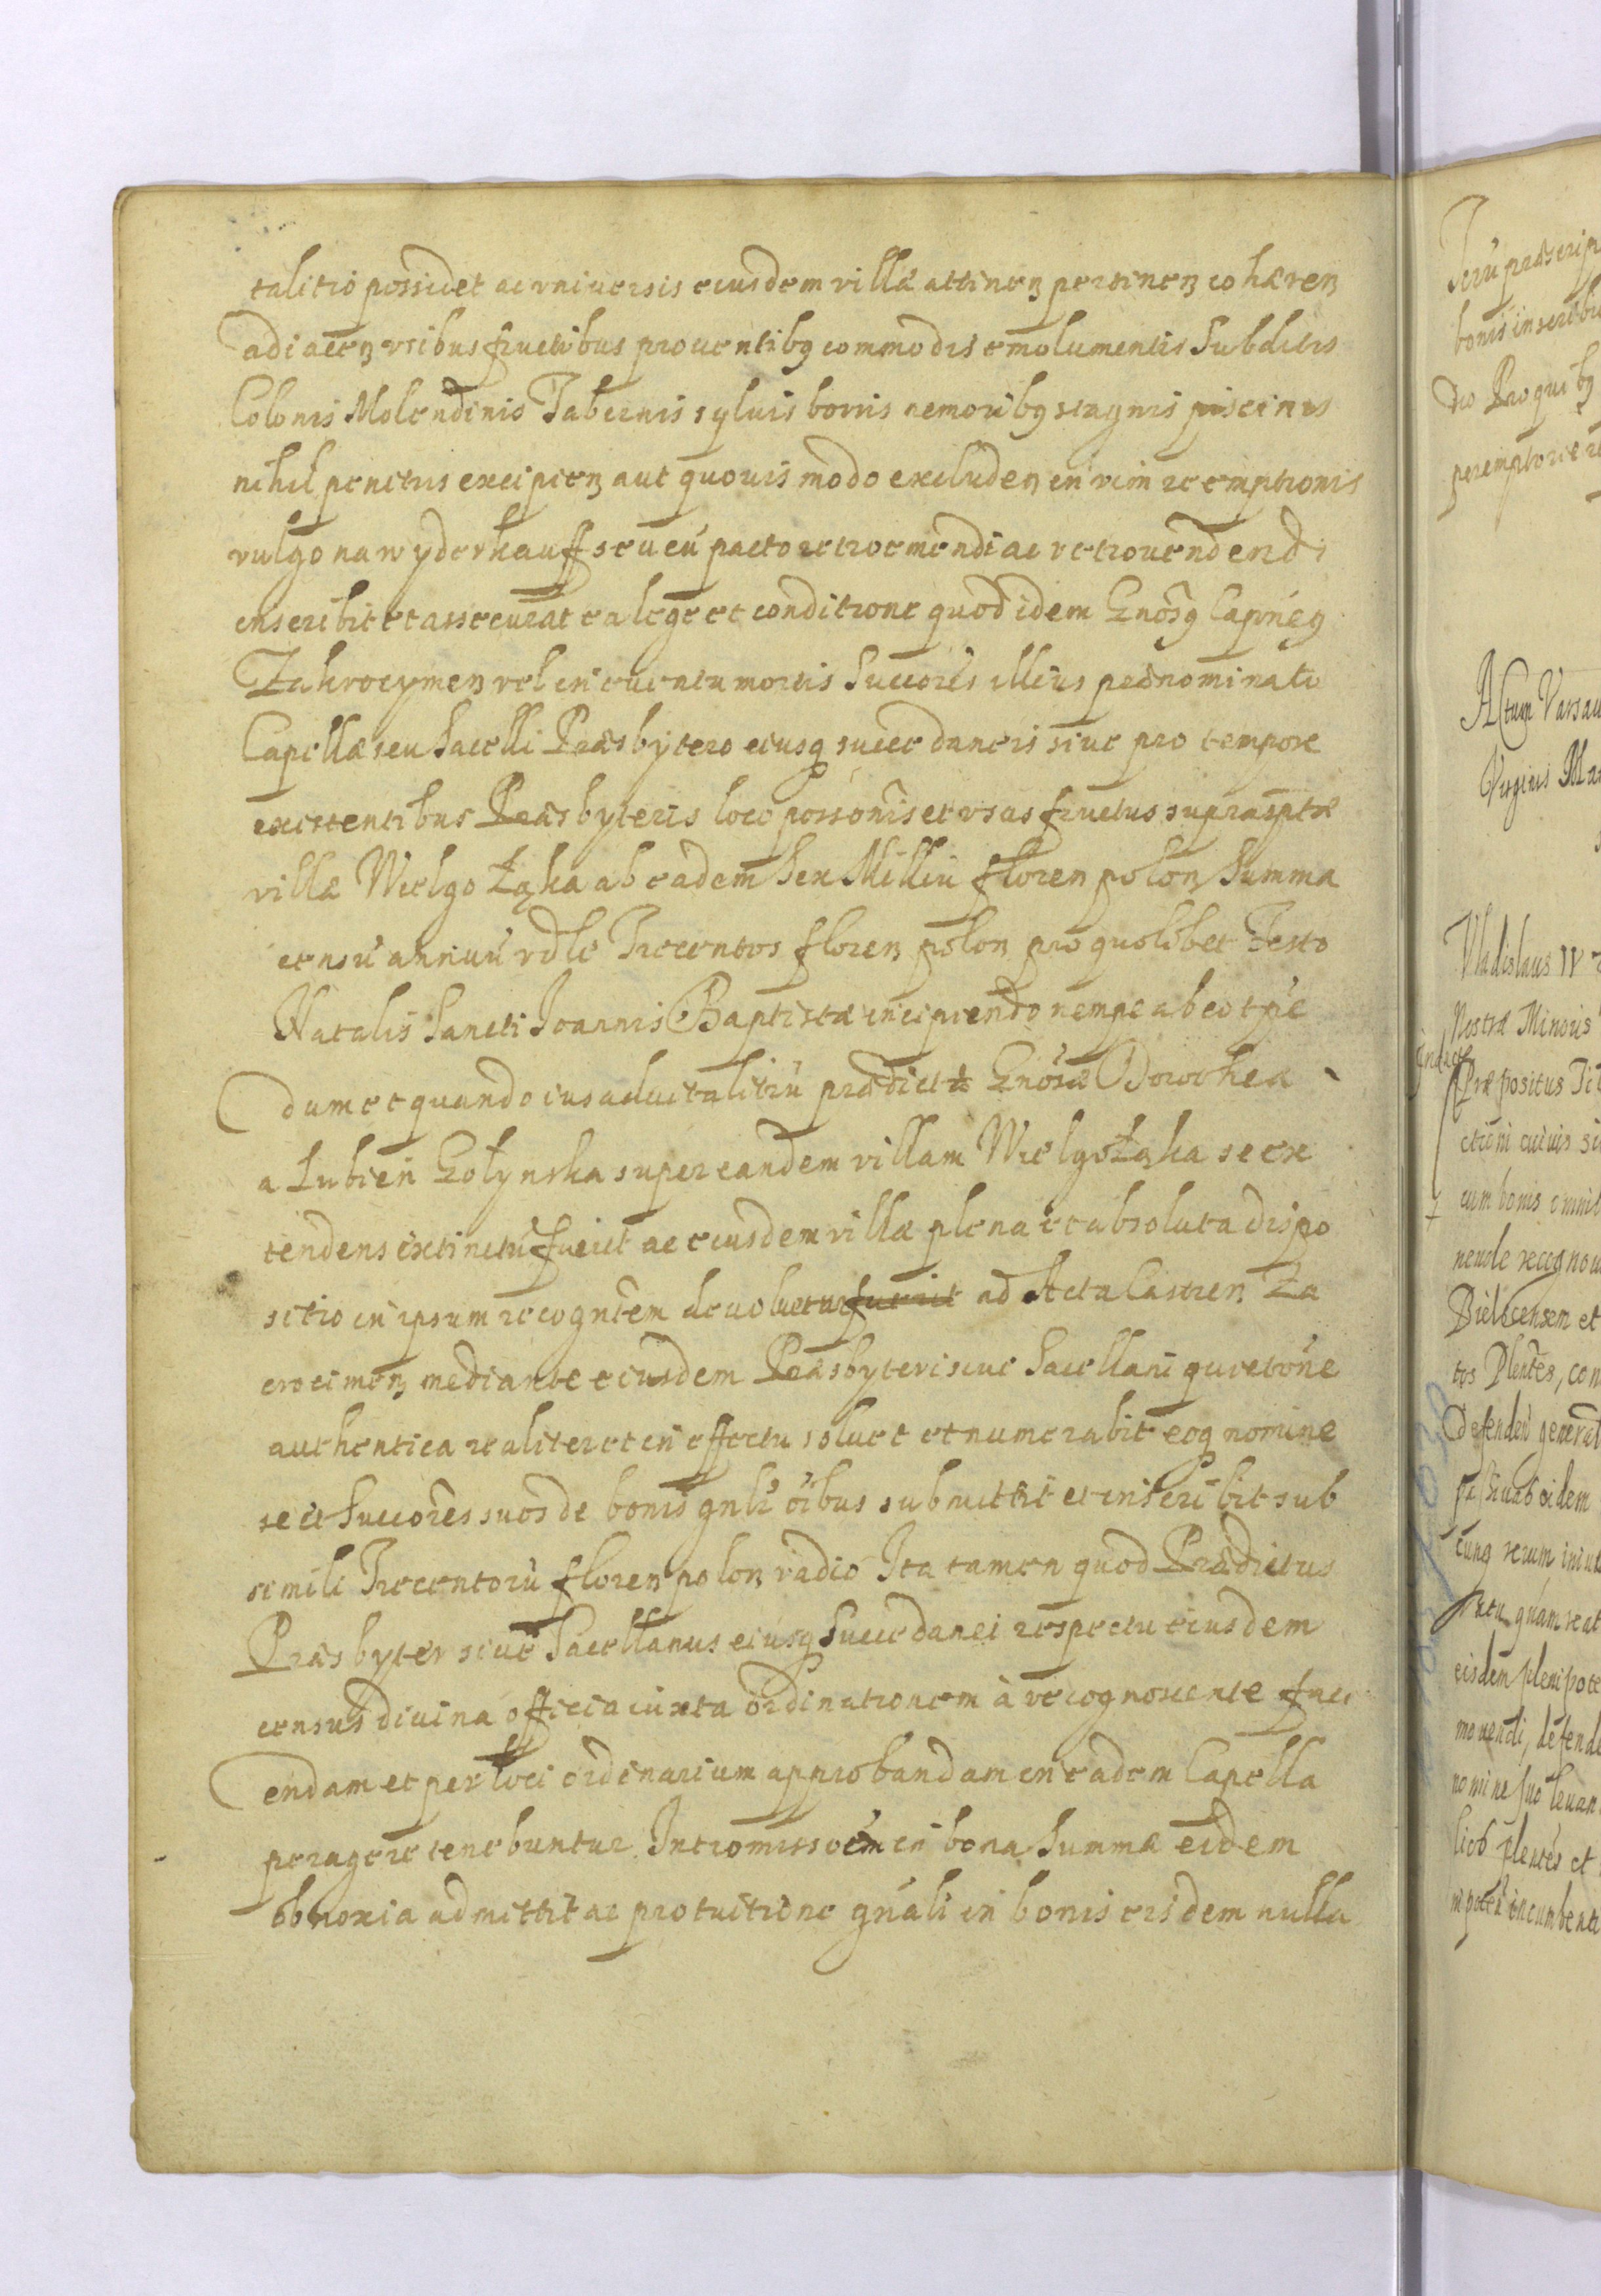 talitio possidet ac vniuersis eiusdem villæ attinen pertinen cohæren
adiacen vsibus fructibus prouentibq commodis emolumentis Subditis
Colonis Molendinis Tabernis syluis borris nemoribq stagnis piscinis
nihil penitus excipien aut quouis modo excluden in vim reemptionis
vulgo na wyderkauff seu cū pacto retroemendi ac retrouendendi
inscribit et assecurat ea lege et conditione quod idem Gnōsq Capnēq
Zakrocymen vel in euentu mortis Succores illius prænominato
Capellæ seu Sacelli Præsbytero eiusq succedaneis siue pro tempore
existentibus Præsbyteris loco possonīs et vsus fructus suprasptæ
villæ Wielgołąka ab eadem Sex Milliū floren polon Summa
censū annuū vdlt Trecentos floren polon pro quolibet Festo
Natalis Sancti Joannis Baptistæ incipiendo nempe ab eo tpē
dum et quando ius aduitalitiū prædictæ Gnōsæ Dorothea
a Łubień Gołynska super eandem villam Wielgołąka se ex
tendens extinctū fuerit ac eiusdem villæ plena et absoluta dispo
sitio in ipsum recogntem deuoluetur fuerit ad Acta Castren Za
crocimen mediante eiusdem Præsbyteri siue Sacellani quietōne
authentica realiter et in effectu soluet et numerabit eoq nomine
se et Succores suos de bonis gnlr oibus submittit et inscribit sub
simili Trecentorū floren polon vadio Ita tamen quod Prædictus
Præsbyter siue Sacellanus eiusq Succedanei respectu eiusdem
census diuina officia iuxta ordinationem à recognoscente faci
endam et per loci ordinarium approbandam in eadem Capella
peragere tenebuntur Intromissoēm in bona Summæ eidem
obnoxia admittit ac pro tuitione gnali in bonis eisdem nulla
bonis inscribi
dio Pro quibq
Actum Varsau
Virginis Ma
Vladislaus IV
Nostræ Minoris
Præpositus
cum bonis omnib
Bielscensem et
tos Plentes, con
Defenden general
eisdem plenipote
mouendi, defende
nomine suo leuan